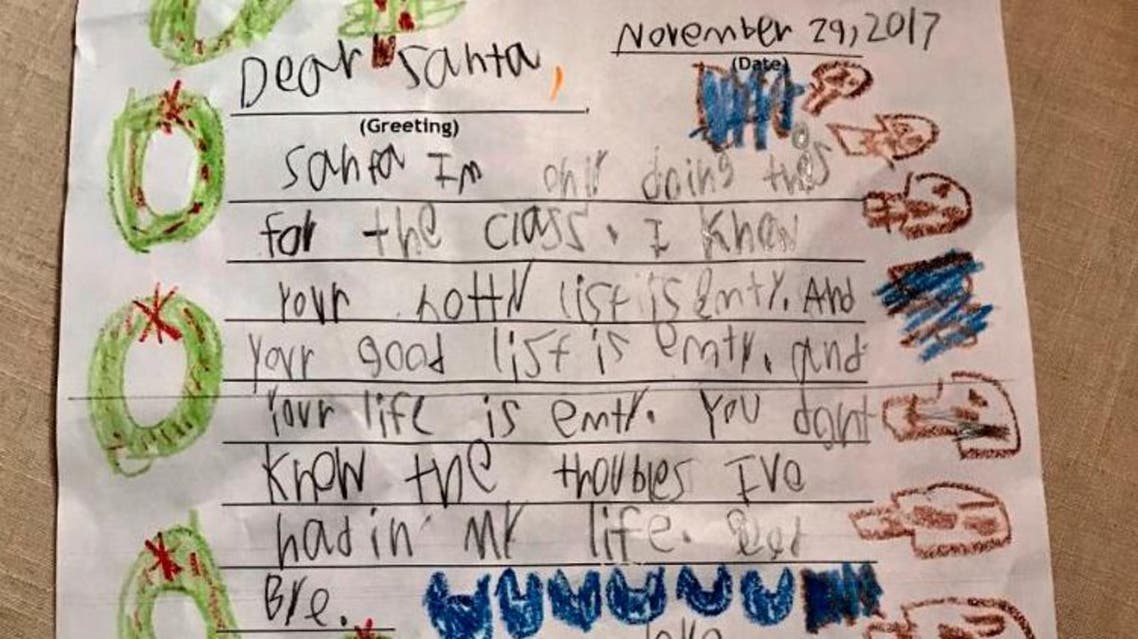 November 29, 2017
(Date)
Dear Santa,
(Greeting)
Santa Im onlr doing this
for the class. I Know
Your nottN list is emty. And
Your good list is emty. and
Your life is emty. You dont
Know the thoubles Ive
had in my life. Bad
Bye.
love